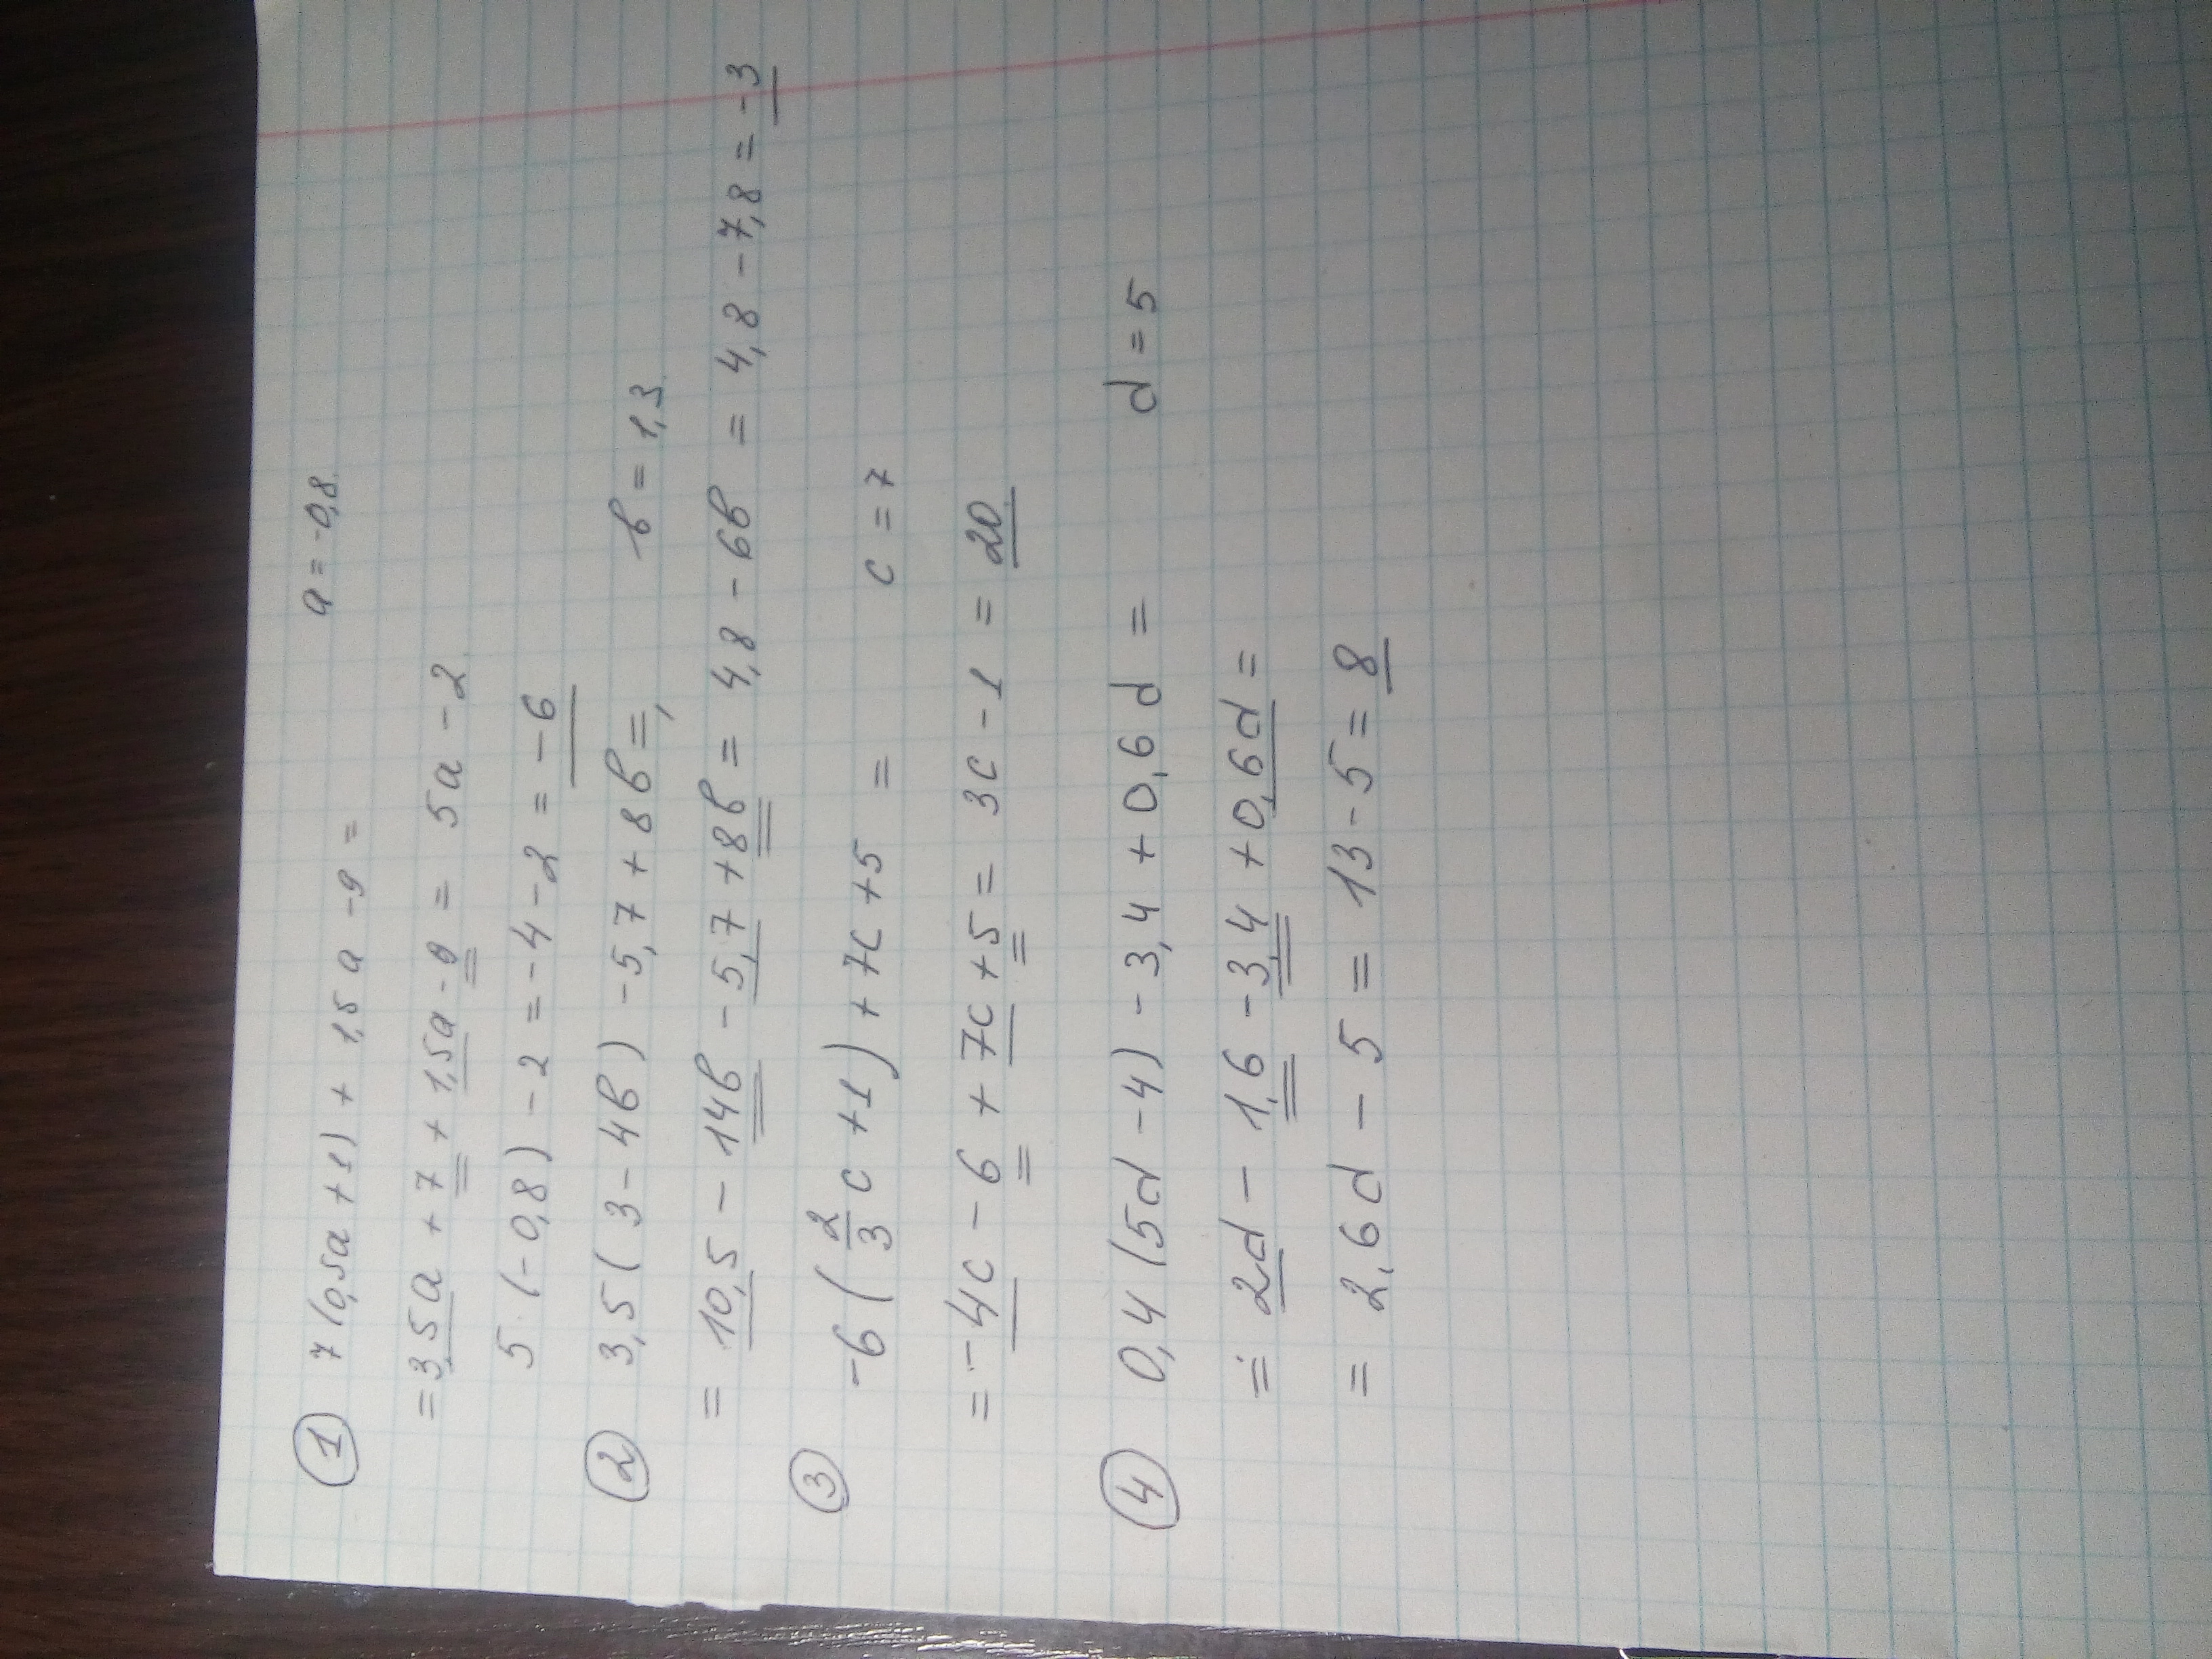 1 7(0,5a+1) + 1,5a -9 = a = -0,8
= 3,5a + 7 + 1,5a - 9 = 5a - 2
5·(-0,8) - 2 = -4 - 2 = -6
2 3,5(3 - 4в) - 5,7 + 8в =, в = 1,3
= 10,5 - 14в - 5,7 + 8в = 4,8 - 6в = 4,8 - 7,8 = -3
3 -6(2/3 c + 1) + 7c + 5 = c = 7
= -4c - 6 + 7c + 5 = 3c - 1 = 20
4 0,4(5d - 4) - 3,4 + 0,6d = d = 5
= 2d - 1,6 - 3,4 + 0,6d =
= 2,6d - 5 = 13 - 5 = 8